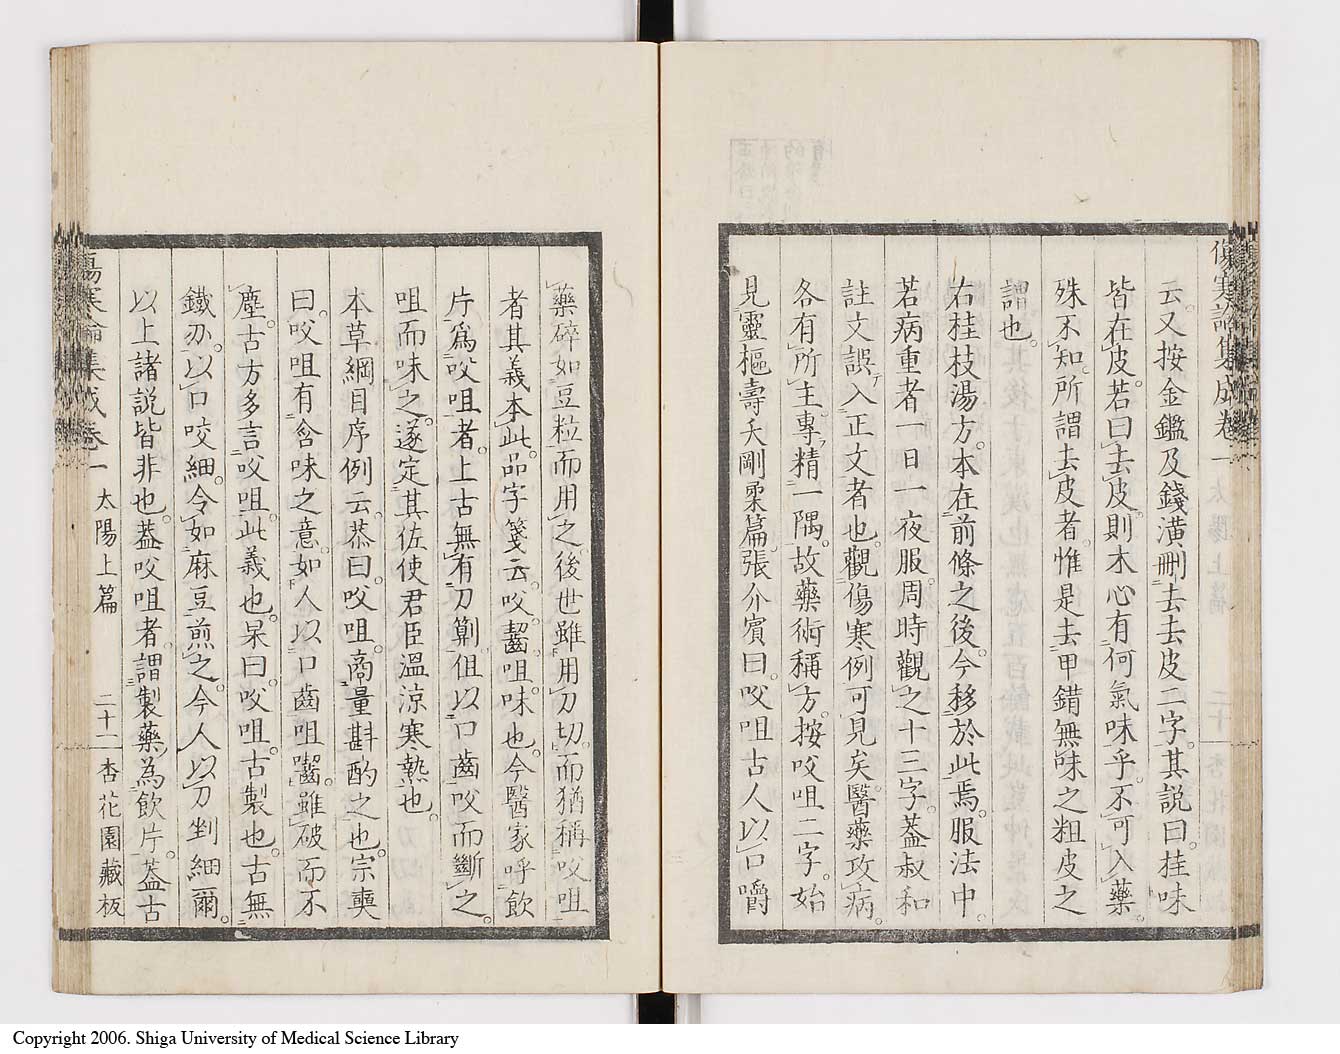 傷寒論集成卷一
云又按金鑑及錢潢刪去去皮二字其說曰桂味
皆在皮若曰去皮則木心有何氣味乎不可入藥
殊不知所謂去皮者惟是去甲錯無味之粗皮之
謂也
右桂枝湯方本在前條之後今移於此焉服法中
若病重者一日一夜服周時觀之十三字蓋叔和
註文誤入正文者也觀傷寒例可見矣醫藥攻病
各有所主專精一隅故藥術稱方按㕮咀二字始
見靈樞壽夭剛柔篇張介賓曰㕮咀古人以口嚼
藥碎如豆粒而用之後世雖用刀切而猶稱㕮咀
者其義本此品字箋云㕮齧咀味也今醫家呼飲
片爲㕮咀者上古無有刀劗但以口齒㕮而斷之
咀而味之遂定其佐使君臣溫涼寒熱也
本草綱目序例云恭曰㕮咀商量斟酌之也宗奭
曰㕮咀有含味之意如人以口齒咀齧雖破而不
塵古方多言㕮咀此義也杲曰㕮咀古製也古無
鐵刃以口咬細令如麻豆煎之今人以刀剉細爾
以上諸說皆非也蓋㕮咀者謂製藥為飲片蓋古
傷寒論集成卷一 太陽上篇 二十二 杏花園藏板
Copyright 2006. Shiga University of Medical Science Library